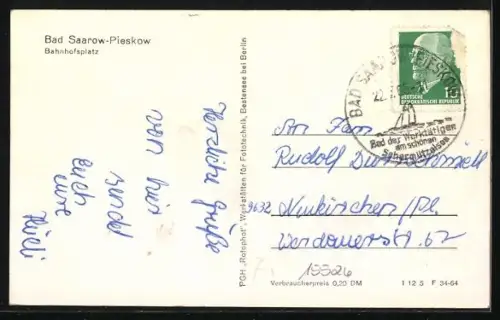 Bad Saarow-Pieskow
Bahnhofsplatz
Herzliche Grüße
von hier
sendet
Euch
eure
PGH „Rotophot", Werkstätten für Fototechnik, Bestensee bei Berlin
BAD SAAROW-PIESKOW
22.
Bad der Werktätigen
am schönen
Scharmützelsee
DEUTSCHE
DEMOKRATISCHE REPUBLIK
10
An Fam
Rudolf
9632 Neukirchen/Pl.
Werdauerstr. 62
15526
Verbraucherpreis 0,20 DM
I 12 5 F 34-64